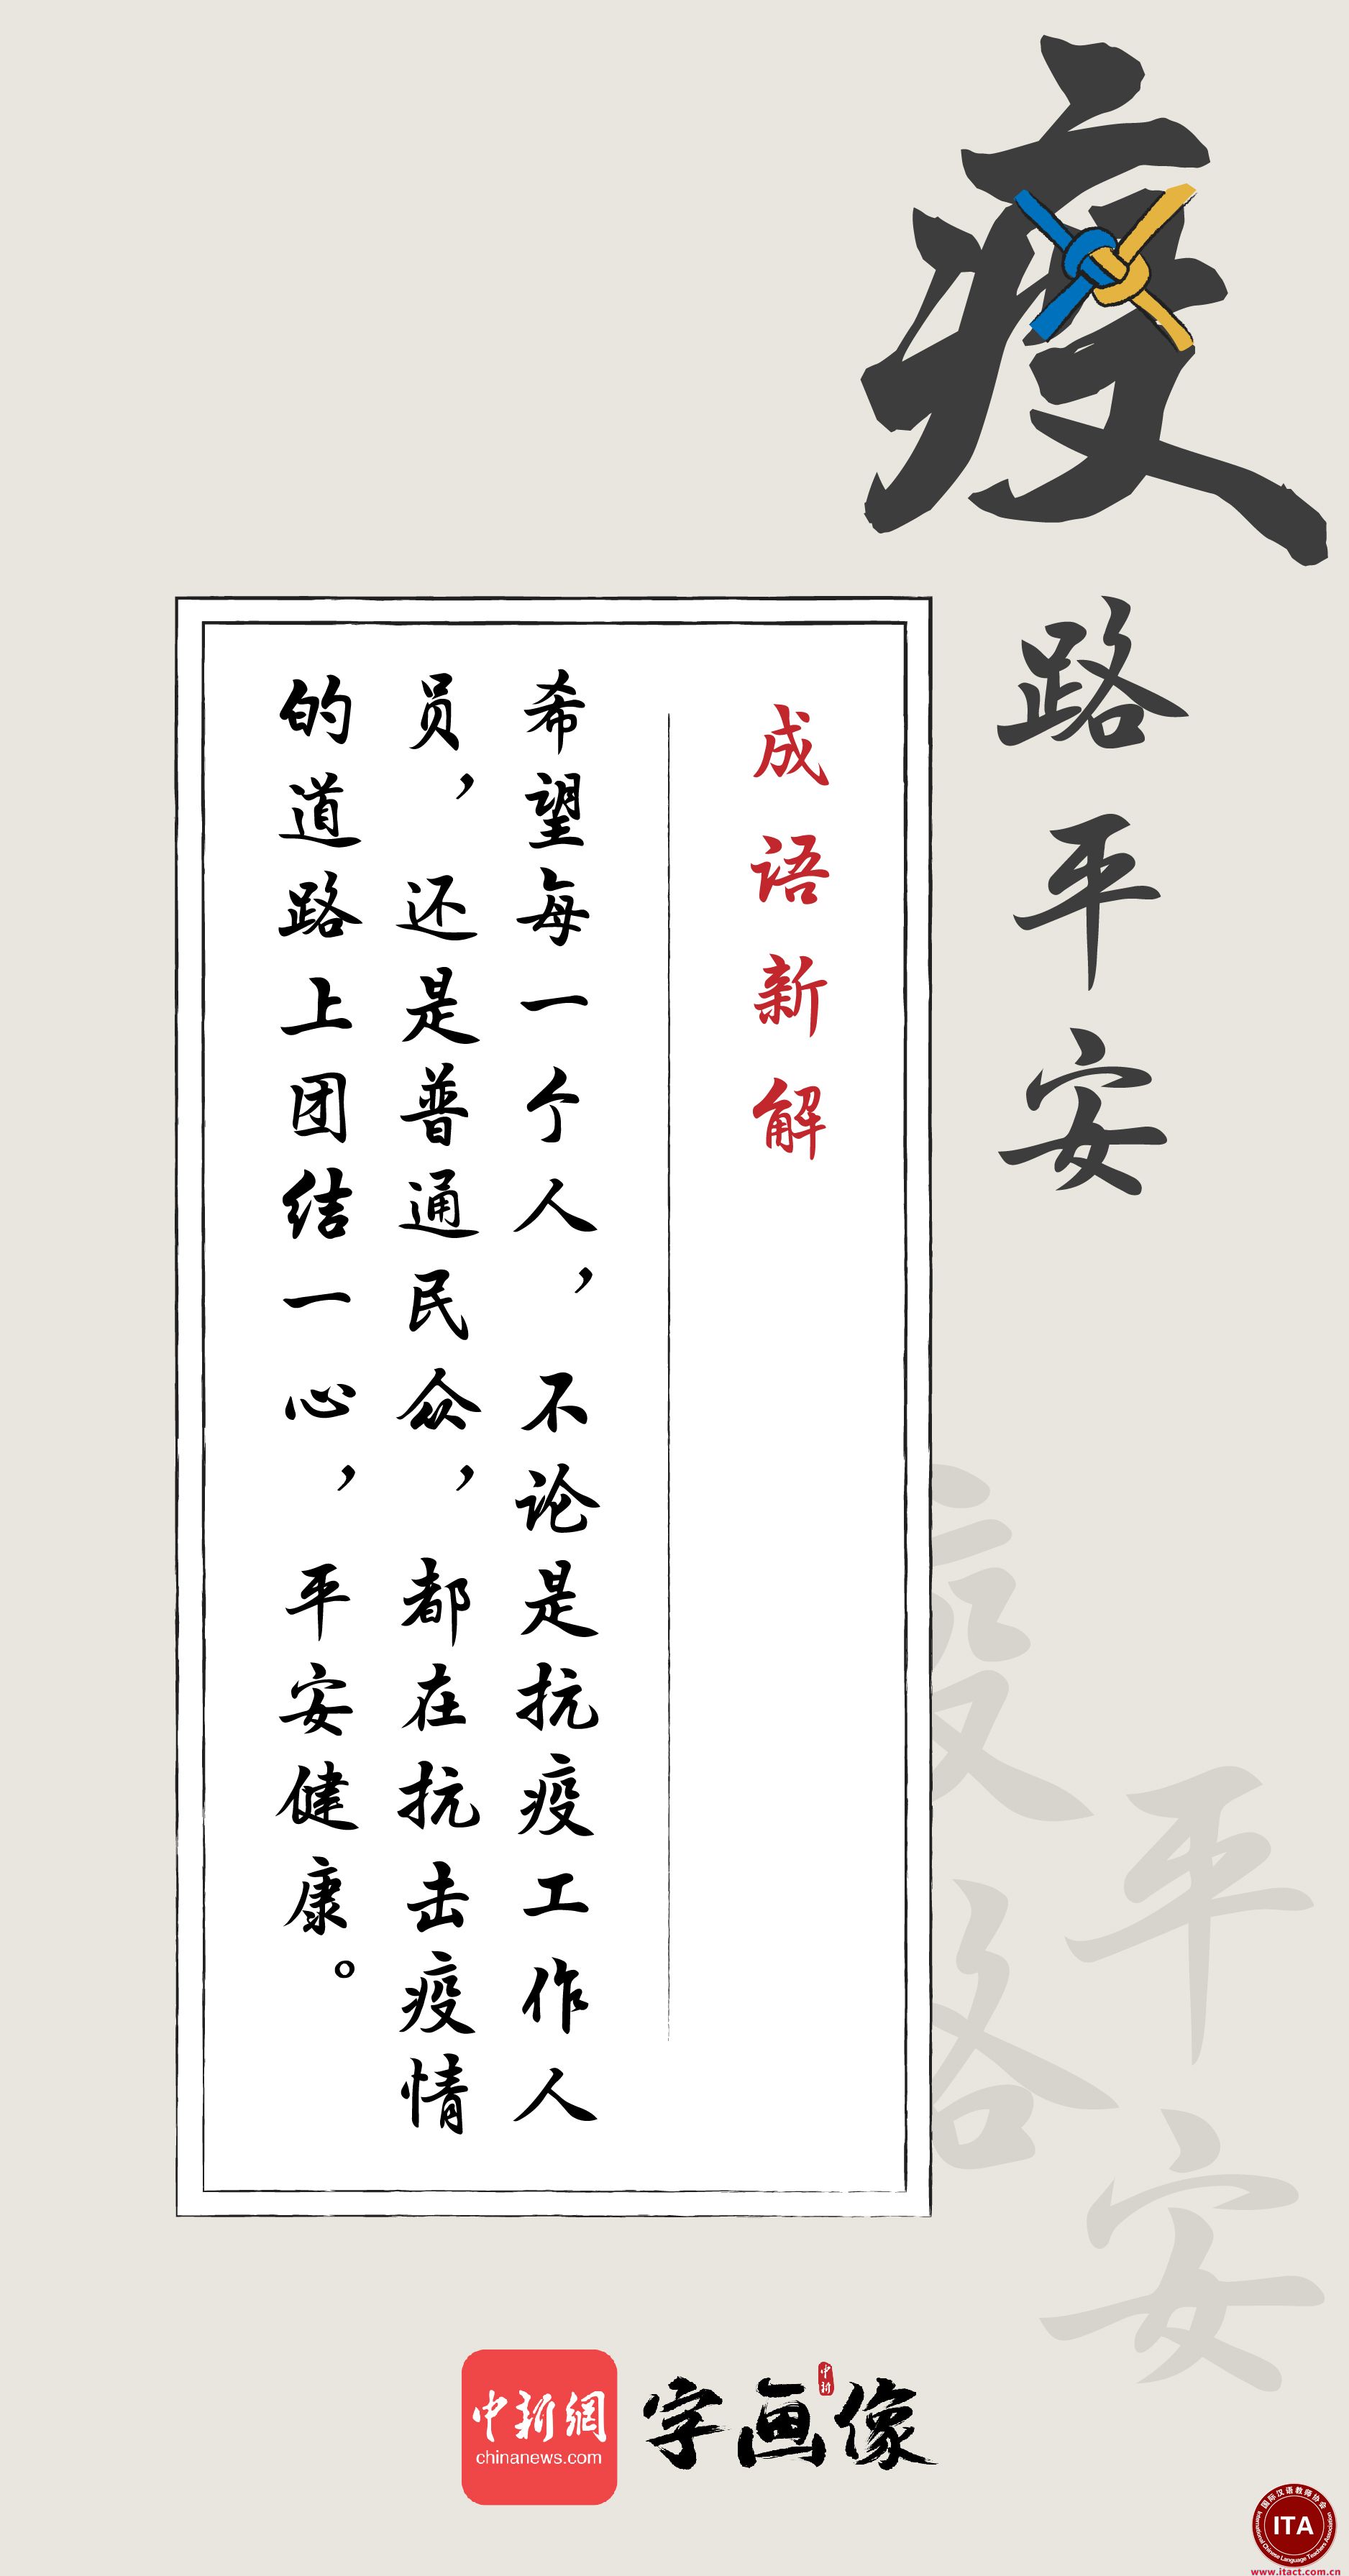 疫路平安
成语新解
希望每一个人，不论是抗疫工作人
员，还是普通民众，都在抗击疫情
的道路上团结一心，平安健康。
疫路
平安
中新網
chinanews.com
字画像
中新
国际汉语教师协会
ITA
International Chinese Language Teachers Association
www.itact.com.cn